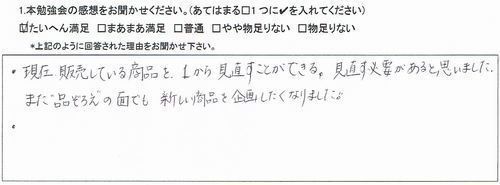 1.本勉強会の感想をお聞かせください。(あてはまる□1つに✔を入れてください)
☑たいへん満足 □まあまあ満足 □普通 □やや物足りない □物足りない
*上記のように回答された理由をお聞かせ下さい。
・現在 販売している商品を、1から見直すことができる。見直す必要があると思いました。
また"品ぞろえ"の面でも 新しい商品を企画したくなりました。
・